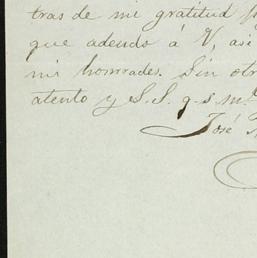 tras de mi gratitud
que adeudo á V, asi
mi honrrades. Sin otr
atento y S. S. q. s. m.
José